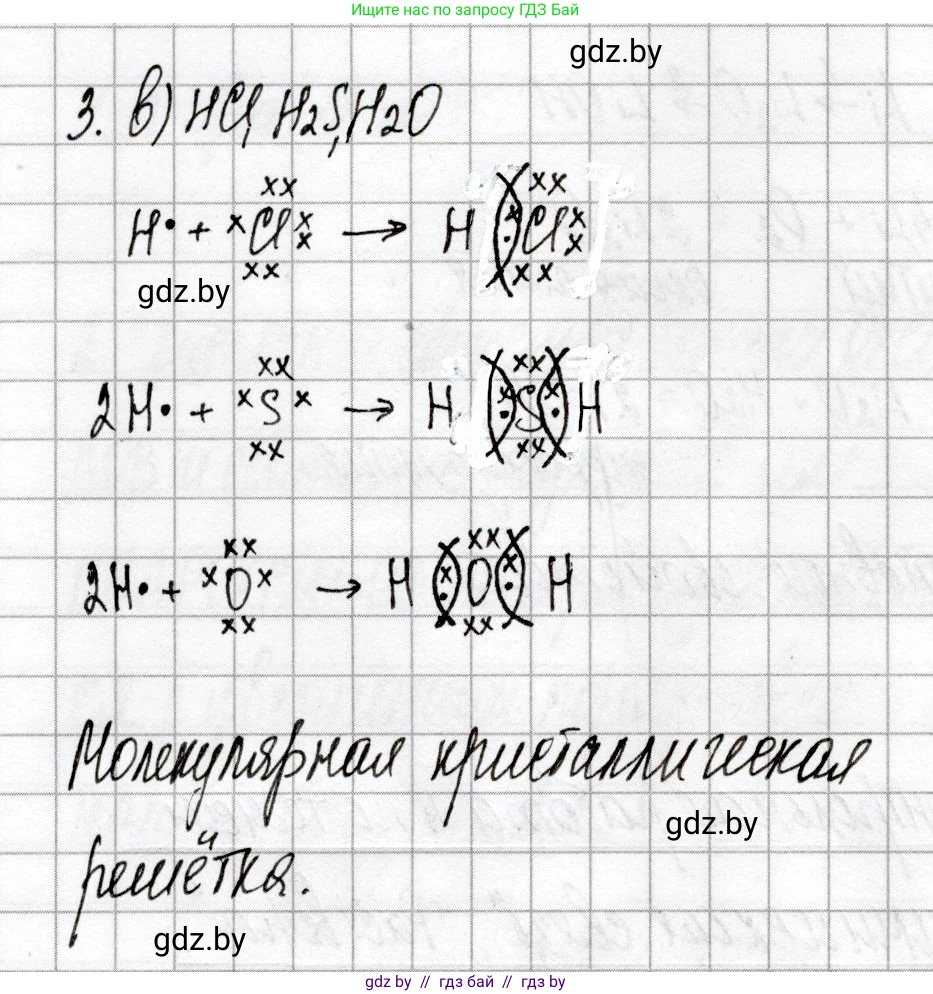 Ищите нас по запросу ГДЗ Бай
gdz.by
3. в) HCl, H₂S, H₂O
H· + Cl → H Cl
gdz.by
2H· + S → H S H
2H· + O → H O H
Молекулярная кристаллическая
gdz.by
решётка.
gdz.by
gdz.by // гдз бай // gdz.by